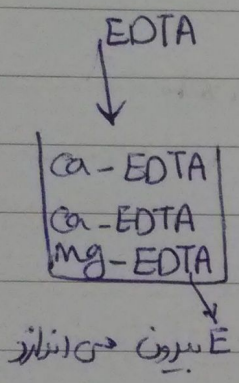 EDTA
Ca-EDTA
Ca-EDTA
Mg-EDTA
E بیرون می اندازد